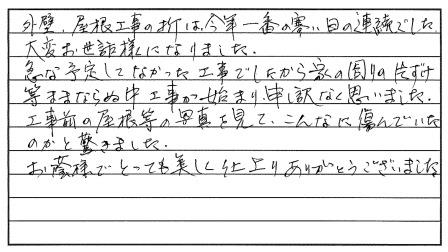 外壁、屋根工事の折は、今年一番の寒い日の連続でした
大変お世話様になりました。
急な予定してなかった工事でしたから家の周りの片ずけ
等ままならぬ中工事が始まり、申し訳なく思いました。
工事前の屋根等の写真を見て、こんなに傷んでいた
のかと驚きました。
お蔭様でとっても美しく仕上りありがとうございました